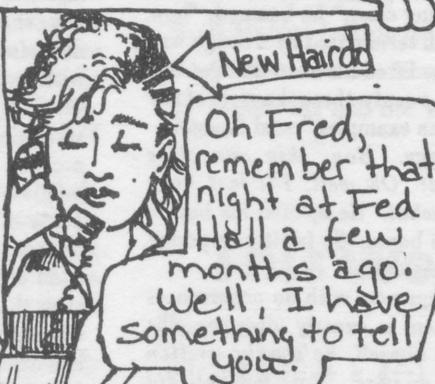 New Hairdo
Oh Fred,
remember that
night at Fed
Hall a few
months ago.
Well, I have
something to tell
you.